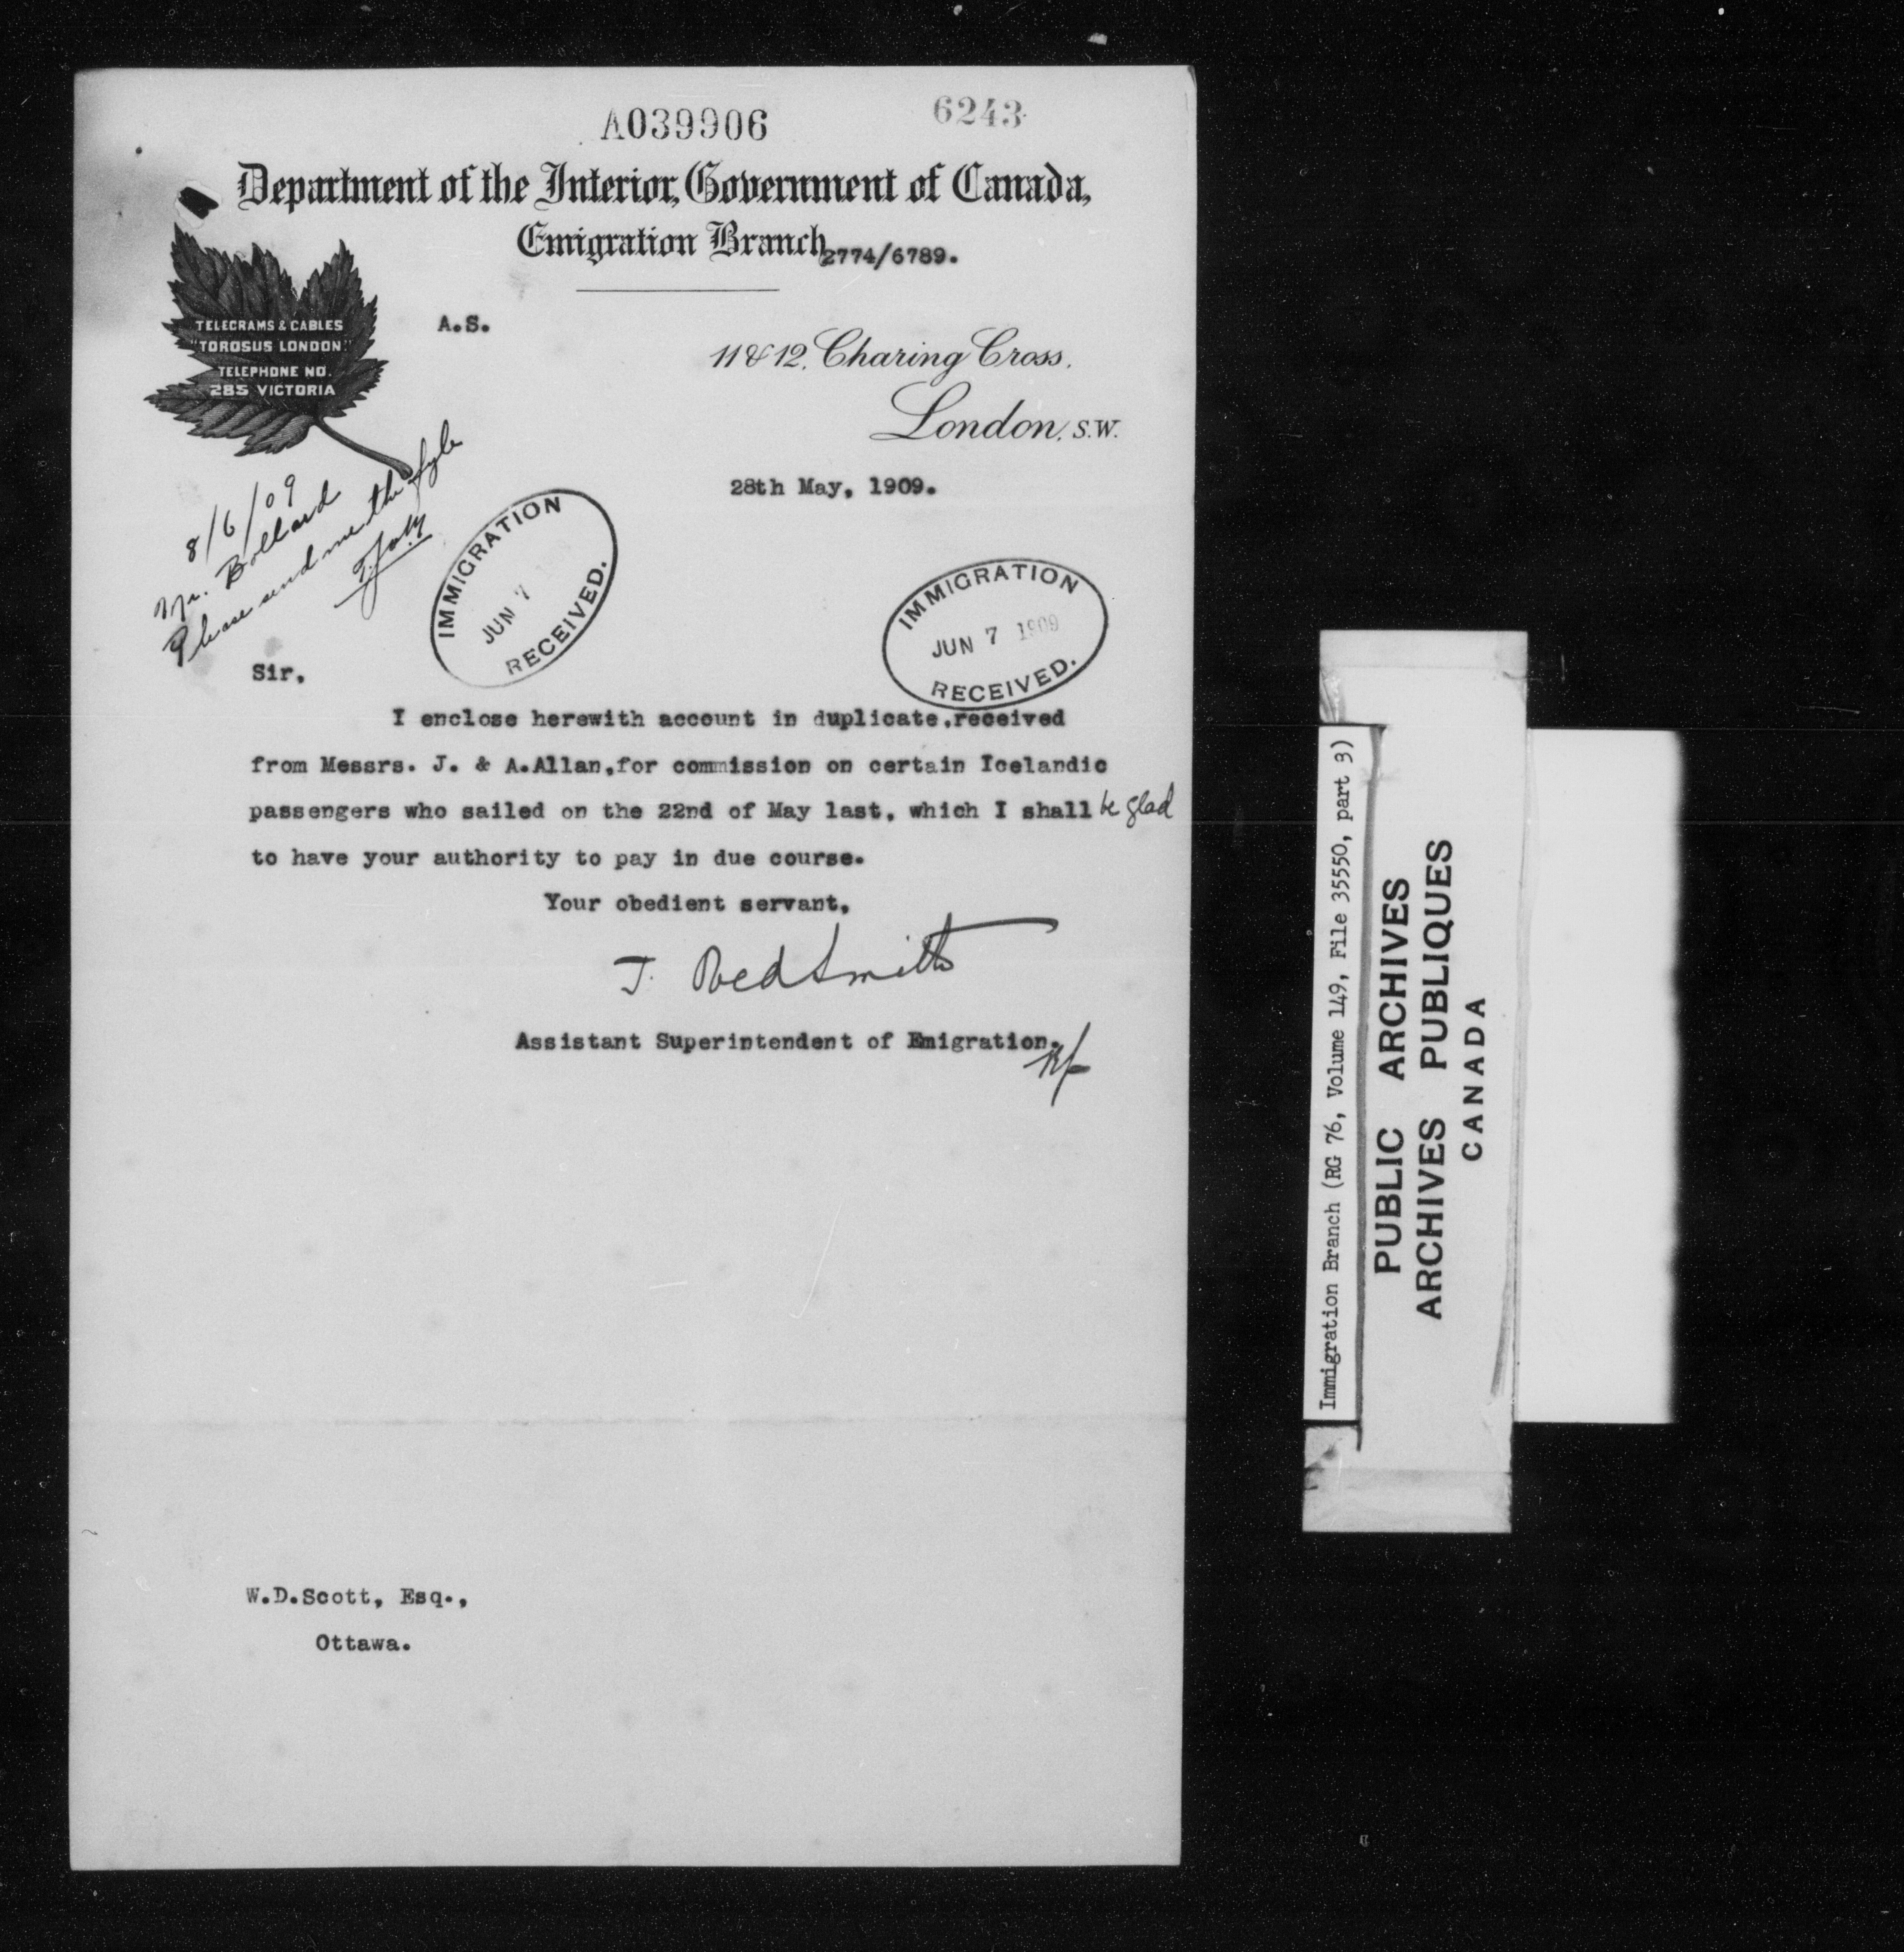 A039906
6243
Department of the Interior, Government of Canada,
Emigration Branch
2774/6789.
TELEGRAMS & CABLES
"TOROSUS LONDON."
TELEPHONE NO.
285 VICTORIA
A.S.
11 & 12, Charing Cross,
London, S.W.
28th May, 1909.
8/6/09
Mr. Bollard
Please send me the fyle
IMMIGRATION
JUN 7
RECEIVED.
IMMIGRATION
JUN 7 1909
RECEIVED.
Sir,
I enclose herewith account in duplicate, received
from Messrs. J. & A.Allan, for commission on certain Icelandic
passengers who sailed on the 22nd of May last, which I shall be glad
to have your authority to pay in due course.
Your obedient servant,
J. Obed Smith
Assistant Superintendent of Emigration.
W.D.Scott, Esq.,
Ottawa.
Immigration Branch (RG 76, Volume 149, File 35550, part 3)
PUBLIC ARCHIVES
ARCHIVES PUBLIQUES
CANADA